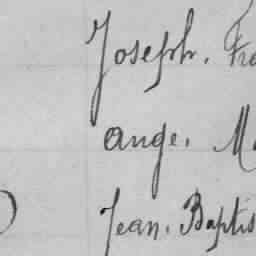 Joseph, Fr
ange, M
Jean, Baptis